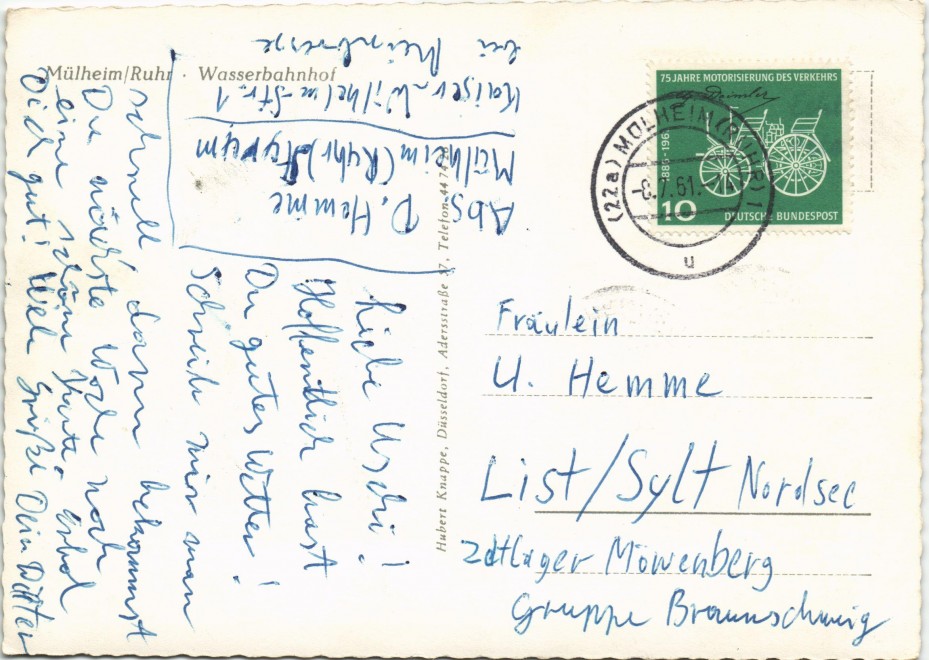 Mülheim/Ruhr · Wasserbahnhof
75 JAHRE MOTORISIERUNG DES VERKEHRS
Daimler
1886-1961
10
DEUTSCHE BUNDESPOST
(22a) MÜLHEIM (RUHR) 1
-8.7.61.
u
Abs D. Hemme
Mülheim (Ruhr)
Kaiser-Wilhelm-Str. 1
bei
Liebe Uschi!
Hoffentlich hast
Du gutes Wetter!
Schreib mir man
schnell dann bekommst
Du nächste Woche noch
eine schöne Karte. Erhol
Dich gut! Viele Grüße Dein
Hubert Knappe, Düsseldorf, Adersstraße 17, Telefon
Fräulein
U. Hemme
List/Sylt Nordsee
Zeltlager Möwenberg
Gruppe Braunschweig